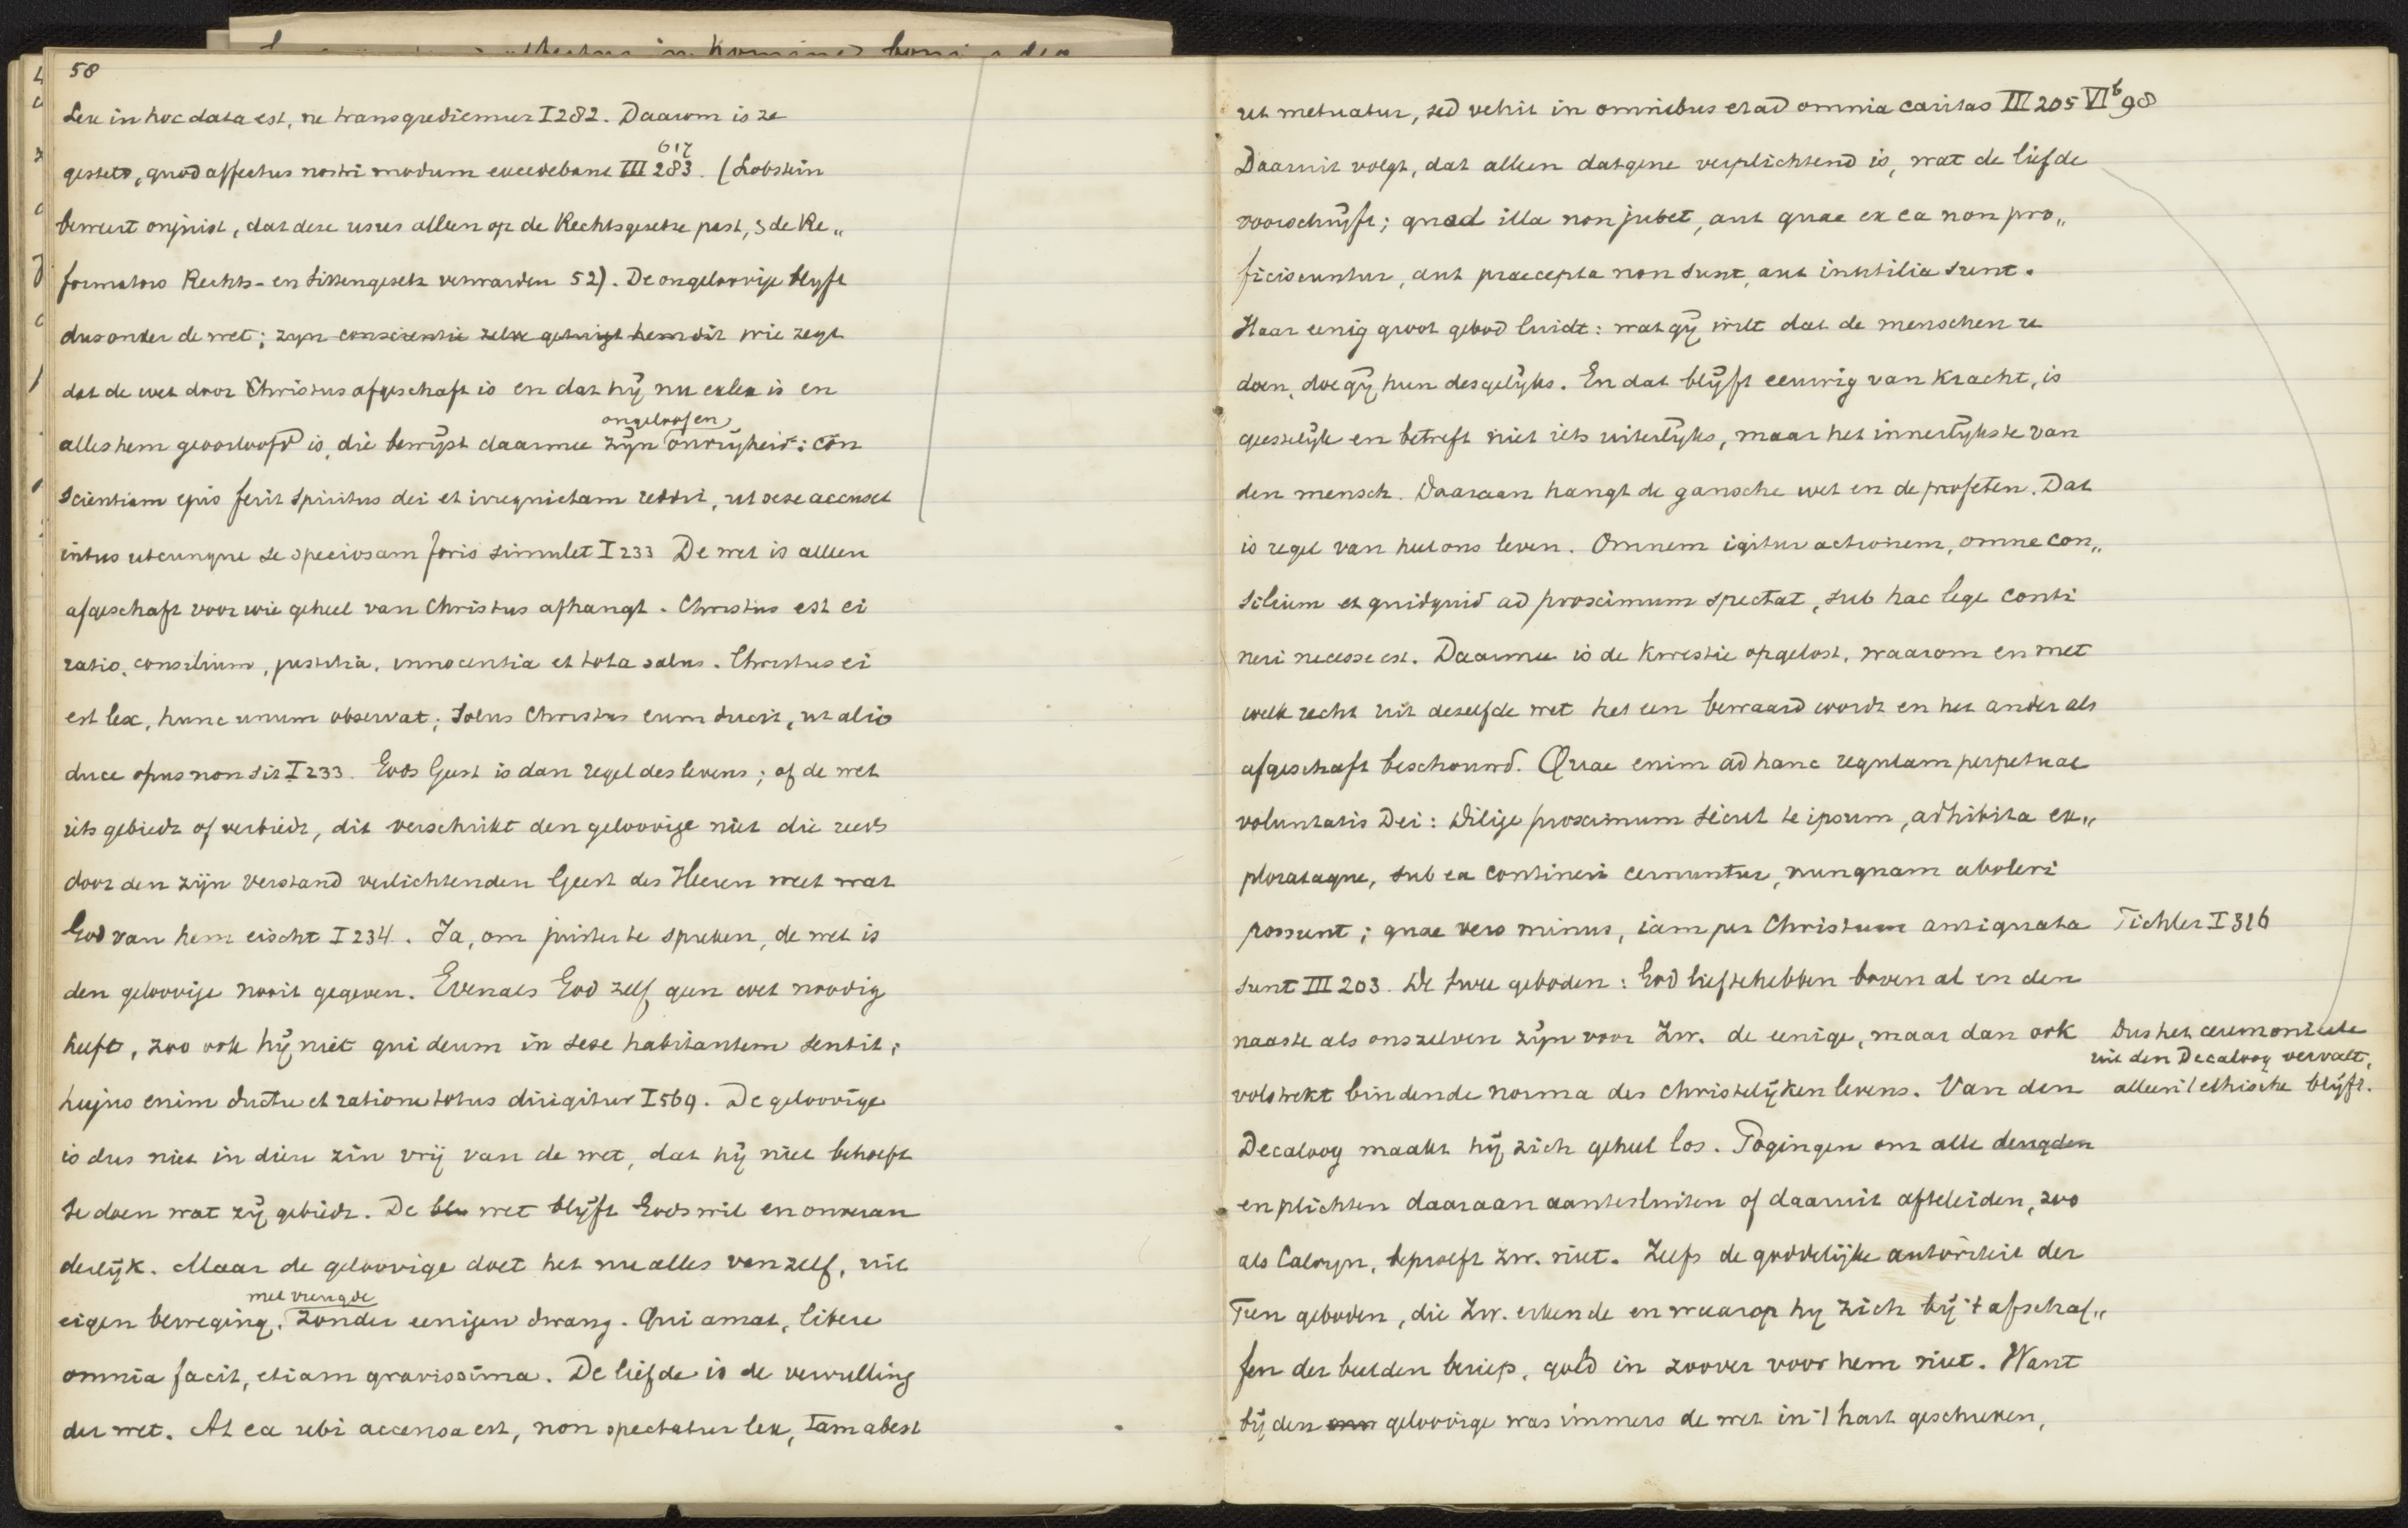 58
Lex in hoc data est, ne transgrediemur I 282. Daarom is ze
617
gesteld, quod affectus nostri modum excedebant III 283. (Lobstein
beweert onjuist, dat deze usus alleen op de Rechtsgesetze past, & de Re„
formators Rechts- en Sittengesetz verwarden 52). De ongeloovige blyft
dus onder de wet; zyn conscientie zelve getuigt hem dit wie zegt
dat de wet door Christus afgeschaft is en dat hij nu exlex is en
ongeloof en
alles hem geoorloofd is, die bewijst daarmee zijn onvrijheid: con
scientiam ejus ferit spiritus dei et irrequietam reddit, ut sese accuset
intus utcunque se speciosam foris simulet I 233 De wet is alleen
afgeschaft voor wie geheel van Christus afhangt. Christus est ei
ratio, consilium, justitia, innocentia et tota salus. Christus ei
est lex, hunc unum observat; solus Christus eum ducit, ut alio
duce opus non sit I 233. Gods Geest is dan regel des levens; of de wet
iets gebiedt of verbiedt, dit verschrikt den geloovige niet die reeds
door den zijn verstand verlichtenden Geest des Heeren weet wat
God van hem eischt I 234. Ja, om juister te spreken, de wet is
den geloovige nooit gegeven. Evenals God zelf geen wet noodig
heeft, zoo ook hij niet qui deum in sese habitantem sentit;
hujus enim ductu et ratione totus dirigitur I 569. De geloovige
is dus niet in dien zin vrij van de wet, dat hij niet behoeft
te doen wat zij gebiedt. De blu wet blijft Gods wil en onveran
derlijk. Maar de geloovige doet het nu alles vanzelf, uit
met vreugde
eigen beweging, zonder eenigen dwang. Qui amat, libere
omnia facit, etiam gravissima. De liefde is de vervulling
der wet. At ea ubi accensa est, non spectatur lex, tam abest
ut metuatur, sed vehit in omnibus et ad omnia caritas III 205 VI b 98
Daaruit volgt, dat alleen datgene verplichtend is, wat de liefde
voorschrijft; quod illa non jubet, aut quae ex ea non pro„
ficiscuntur, aut praecepta non sunt, aut inutilia sunt.
Haar eenig groot gebod luidt: wat gij wilt dat de menschen u
doen, doe gij hun desgelijks. En dat blijft eeuwig van kracht, is
geestelijk en betreft niet iets uiterlijks, maar het innerlijkste van
den mensch. Daaraan hangt de gansche wet en de profeten. Dat
is regel van heel ons leven. Omnem igitur actionem, omne con„
silium et quidquid ad proximum spectat, sub hac lege conti
neri necesse est. Daarmee is de kwestie opgelost, waarom en met
welk recht uit dezelfde wet het een bewaard wordt en het ander als
afgeschaft beschouwd. Quae enim ad hanc regulam perpetuae
voluntatis Dei: Dilige proximum sicut te ipsum, adhibita ex„
plorataque, sub ea contineri cernuntur, nunquam aboleri
possunt; quae vero minus, iam per Christum antiquata Tichler I 316
sunt III 203. De twee geboden: God liefhebben boven al en den
naaste als onszelven zijn voor Zw. de eenige, maar dan ook Dus het ceremonieele
uit den Decaloog vervalt,
volstrekt bindende norma des christelijken levens. Van den alleen 't ethische blijft.
Decaloog maakt hij zich geheel los. Pogingen om alle deugden
en plichten daaraan aantesluiten of daaruit afteleiden, zoo
als Calvyn, beproeft Zw. niet. Zelfs de goddelijke autoriteit der
Tien geboden, die Zw. erkende en waarop hy zich bij 't afschaf„
fen der beelden beriep, gold in zoover voor hem niet. Want
bij den geloovige was immers de wet in 't hart geschreven,